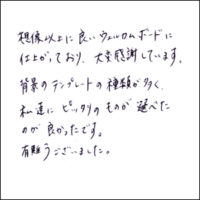 想像以上に良いウェルカムボードに
仕上がっており、大変感謝しています。
背景のテンプレートの種類が多く、
私達にピッタリのものが選べた
のが良かったです。
有難うございました。